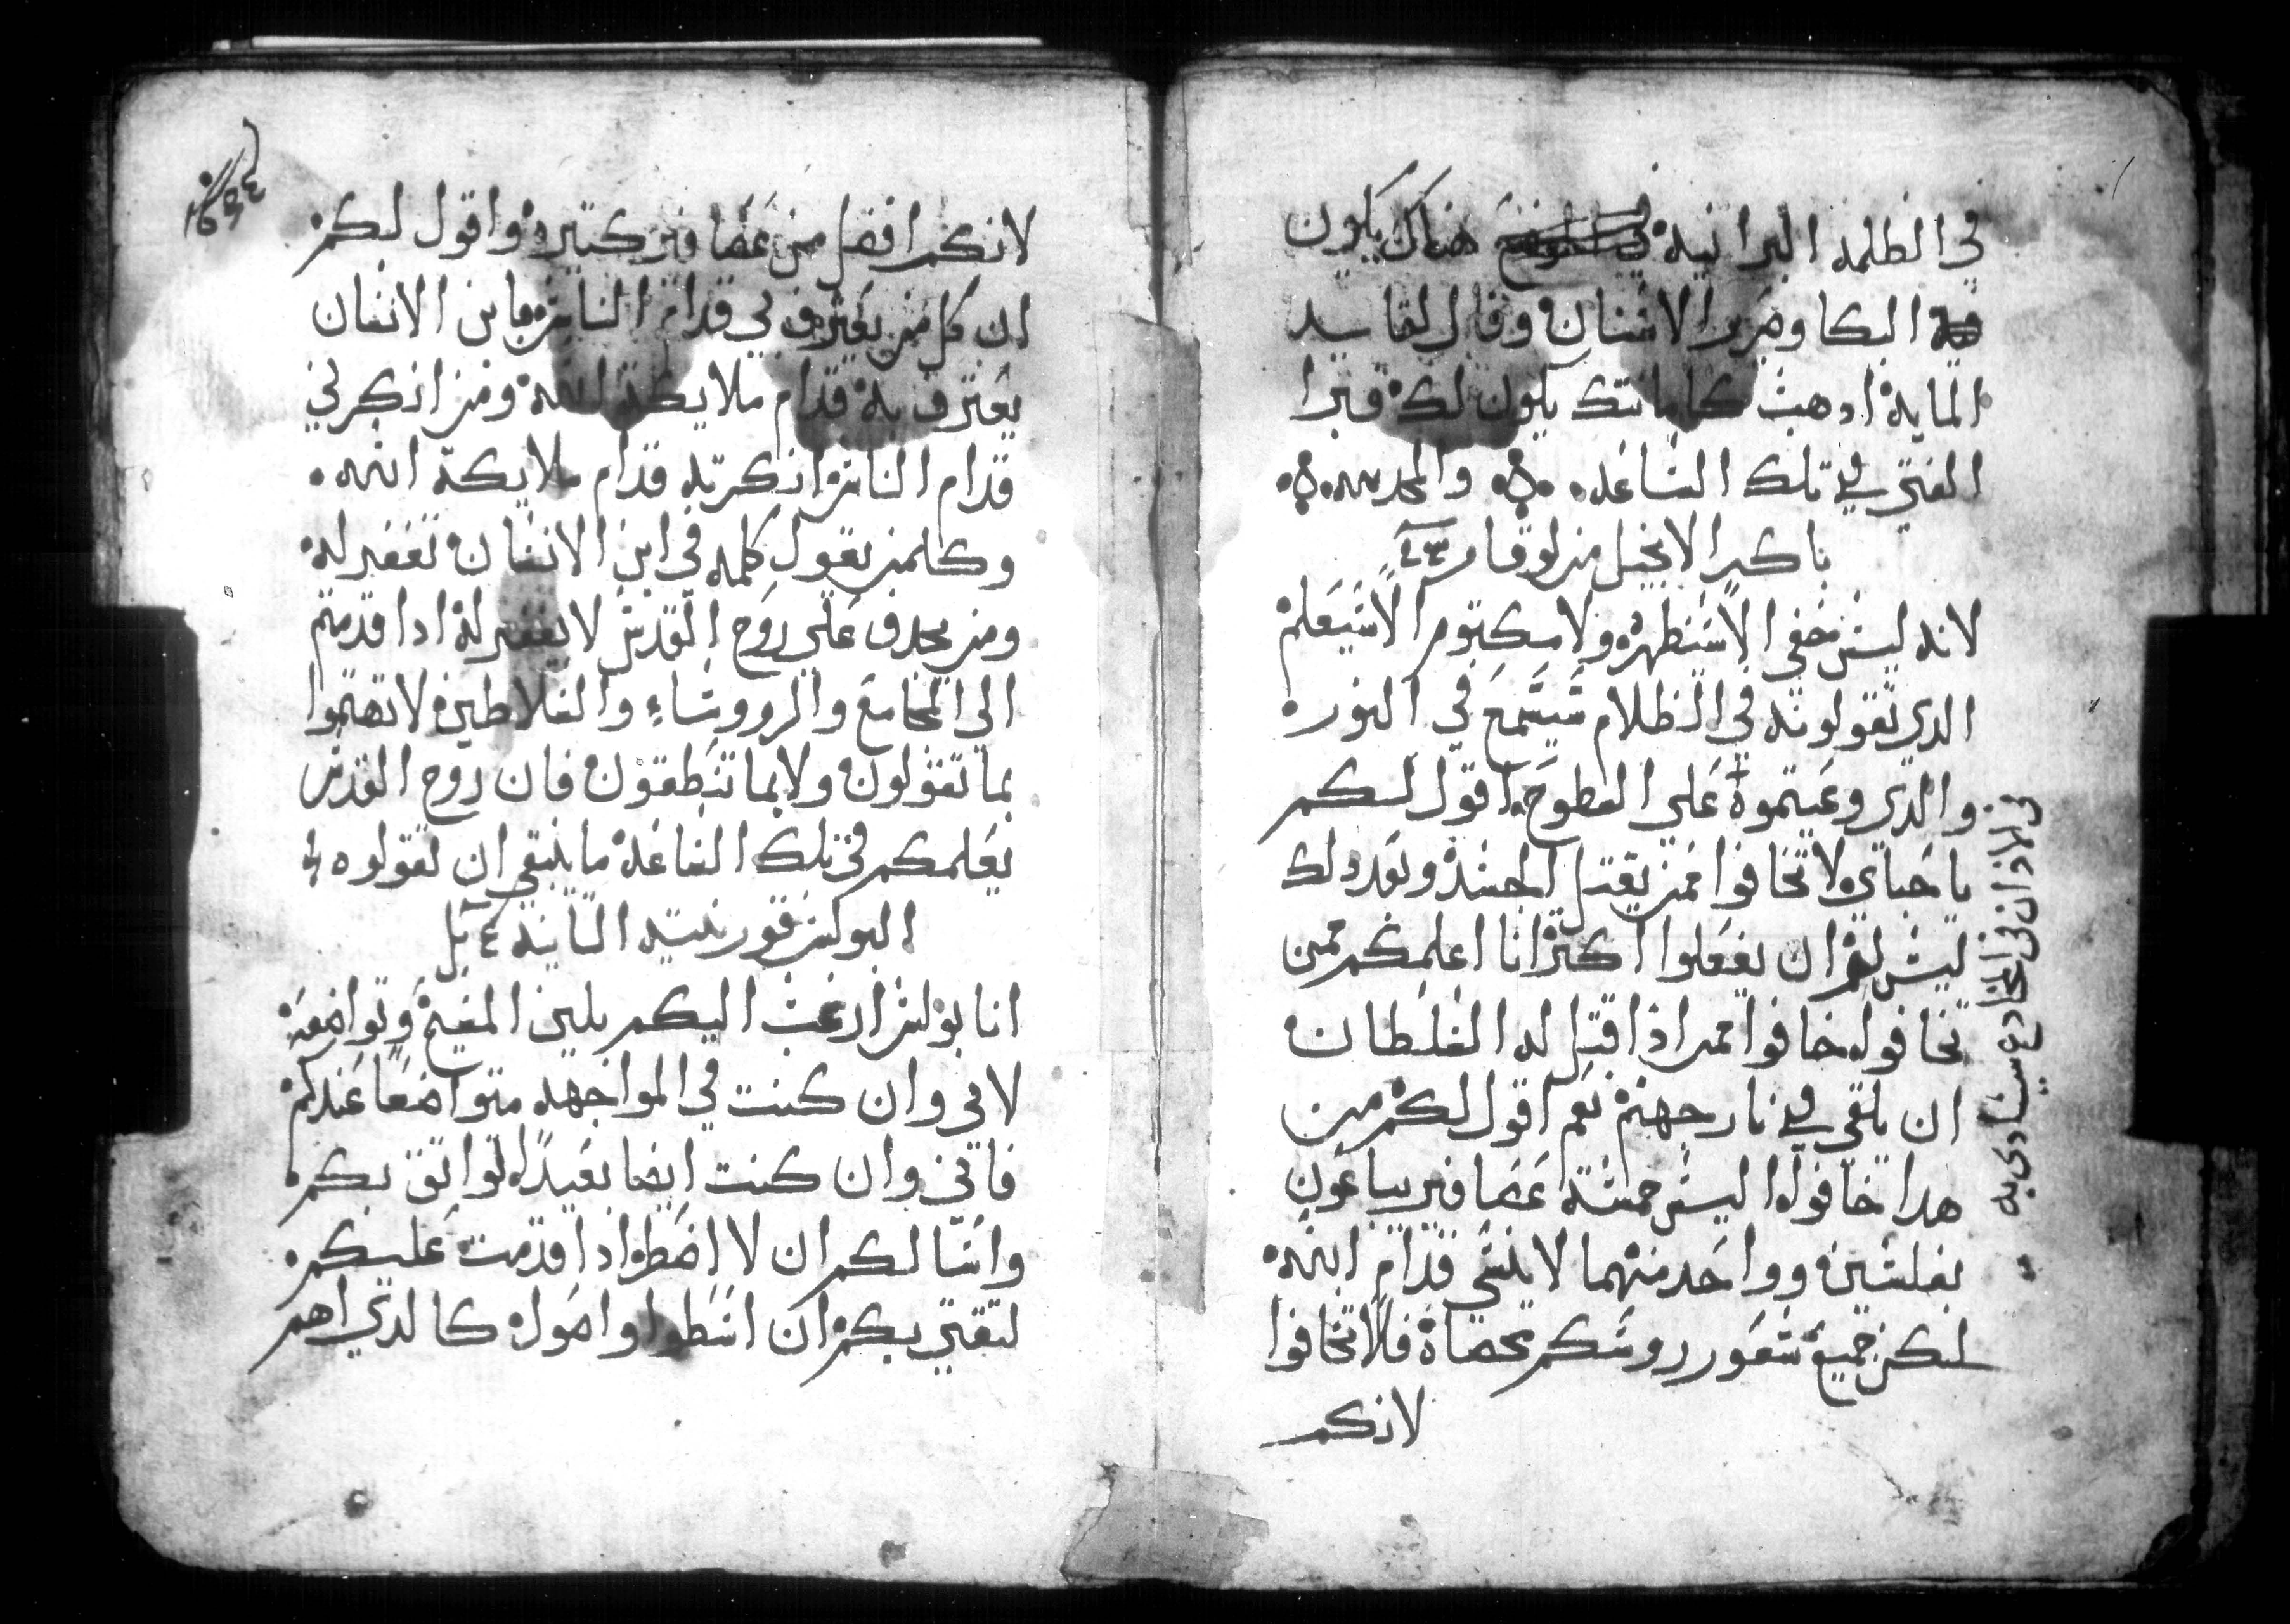 في الظلمه البرانيه هناك يكون
البكا وصرير الاسنان وقال لقايد
المايه ادهب كامانتك يكون لك فبرا
الفتي في تلك الساعه والمجد لله
باكر الانجيل من لوقا
لانه ليس خفي الا سيظهر ولا مكتوم الا سيعلم
الدي تقولونه في الظلام سيسمع في النور
والدي وعيتموه علي السطوح اقول لكم
يا حباي لا تخافوا ممن يقتل الجسد وبعد دلك
ليس لهم ان يفعلوا اكتر انا اعلمكم ممن
تخافوه خافوا ممن اذا قتل له السلطان
ان يلقي في نار جهنم نعم اقول لكم من
هدا خافوا اليس خمسة عصافير يباعون
بفلسين وواحد منهما لا ينسي قدام الله
لكن جميع شعور رووسكم محصاة فلا تخافوا
لانكم
في الاذان في المخادع سينادى به
لانكم افضل من عصافير كتيره واقول لكم
ان كل من يعترف بي قدام الناس فابن الانسان
يعترف به قدام ملايكة الله ومن انكرني
قدام الناس انكرته قدام ملايكة الله
وكلمن يقول كلمه في ابن الانسان تغفر له
ومن يجدف علي روح القدس لا يغفر له ادا قدمتم
الي المجامع والرووساء والسلاطين لا تهتموا
بما تقولون ولا بما تنطقون فان روح القدس
يعلمكم في تلك الساعه ما ينبغي ان تقولوه
البولس قورنتيه التانيه
انا بولس ارغب اليكم بلين المسيح وتواضعه
لاني وان كنت في المواجهه متواضعا عندكم
فاني وان كنت ايضا بعيدا لواتق بكم
واسالكم ان لا اضطر ادا قدمت عليكم
لتقتي بكم ان اسطوا واصول كالدي اهم